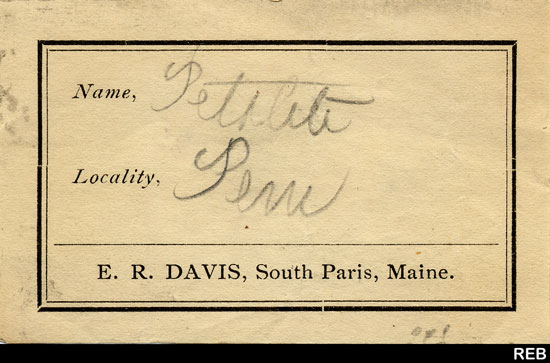 Name, Petalite
Locality, Peru
E. R. DAVIS, South Paris, Maine.
REB